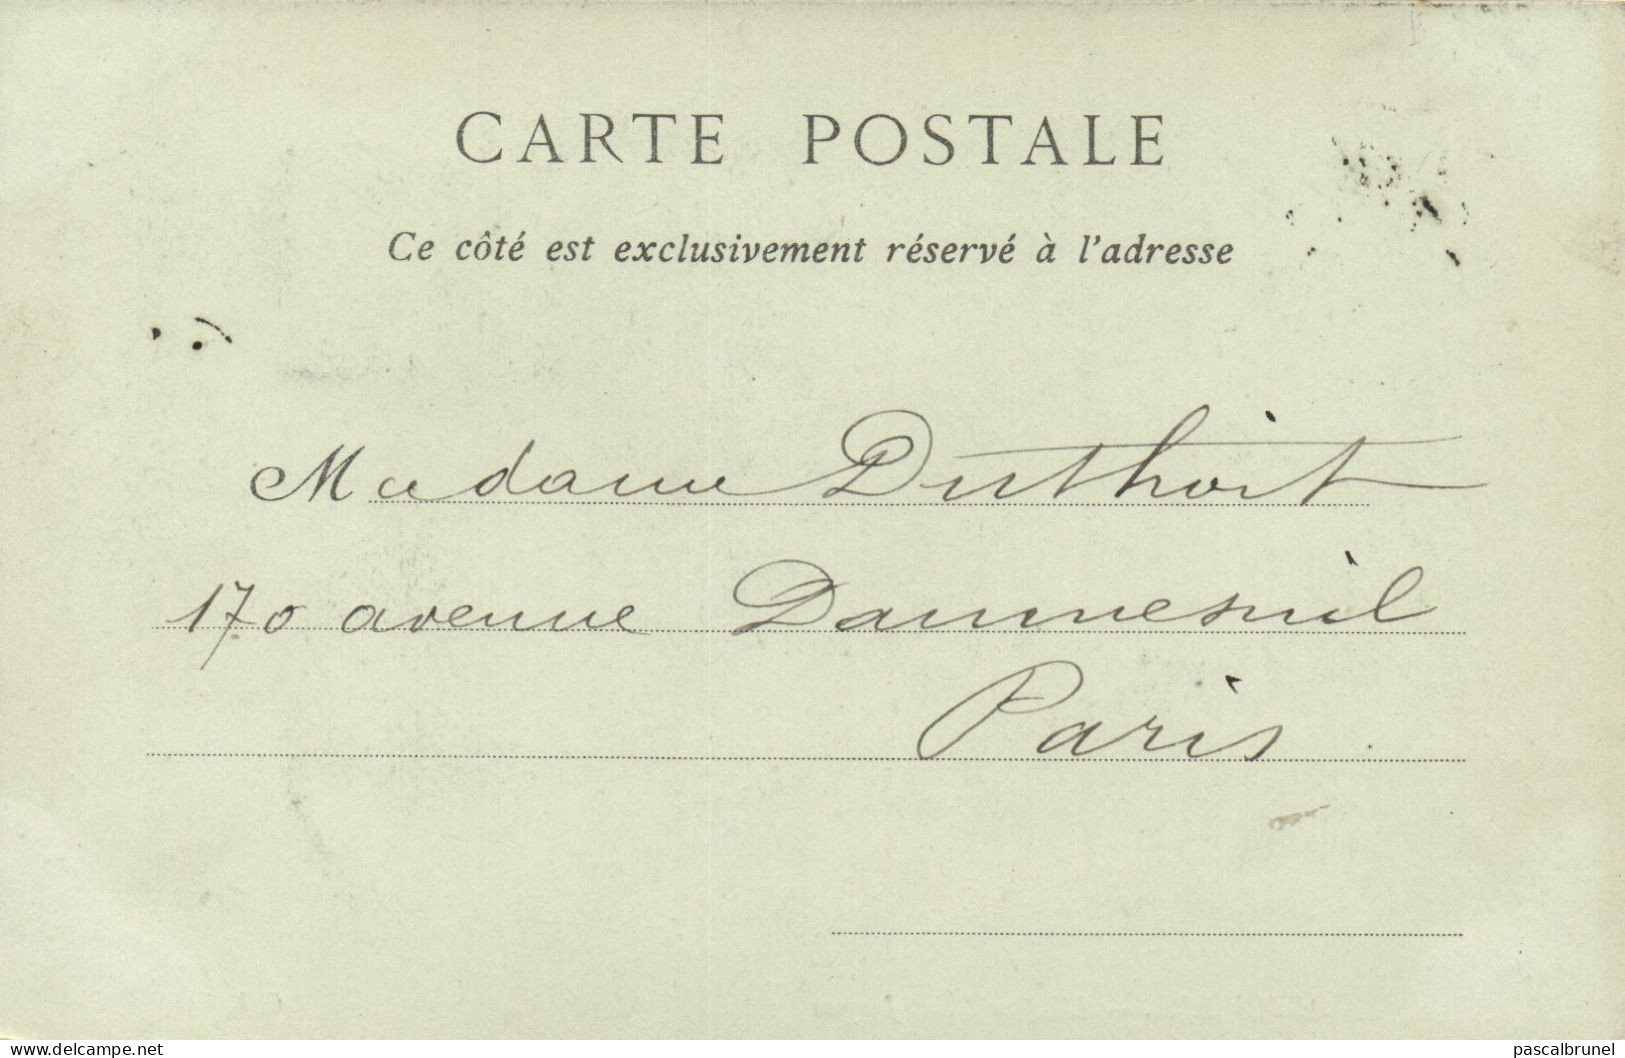 CARTE POSTALE
Ce côté est exclusivement réservé à l'adresse
Madame Duthoit
170 avenue Daumesnil
Paris
www.delcampe.net
pascalbrunel